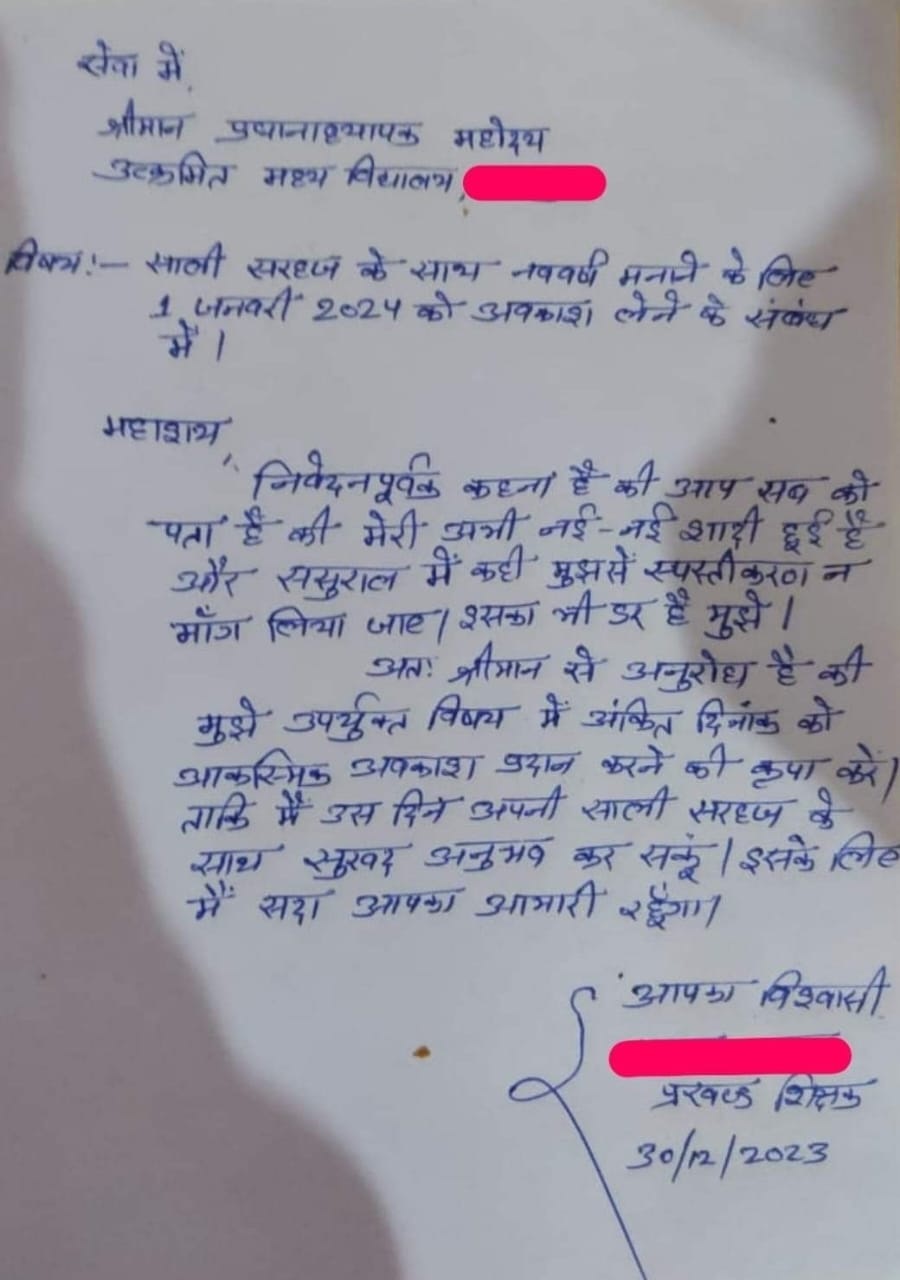 सेवा में,
श्रीमान प्रधानाध्यापक महोदय
उत्क्रमित मध्य विद्यालय,
विषय:- साली सरहज के साथ नववर्ष मनाने के लिए
1 जनवरी 2024 को अवकाश लेने के संबंध
में।
महाशय,
निवेदनपूर्वक कहना है की आप सब को
पता है की मेरी अभी नई-नई शादी हुई है
और ससुराल में कही मुझसे स्पस्तीकरण न
माँग लिया जाए। इसका भी डर है मुझे।
अतः श्रीमान से अनुरोध है की
मुझे उपर्युक्त विषय में अंकित दिनांक को
आकस्मिक अवकाश प्रदान करने की कृपा करें।
ताकि मैं उस दिन अपनी साली सरहज के
साथ सुखद अनुभव कर सकूं। इसके लिए
मैं सदा आपका आभारी रहूँगा।
आपका विश्वासी
प्रखण्ड शिक्षक
30/12/2023